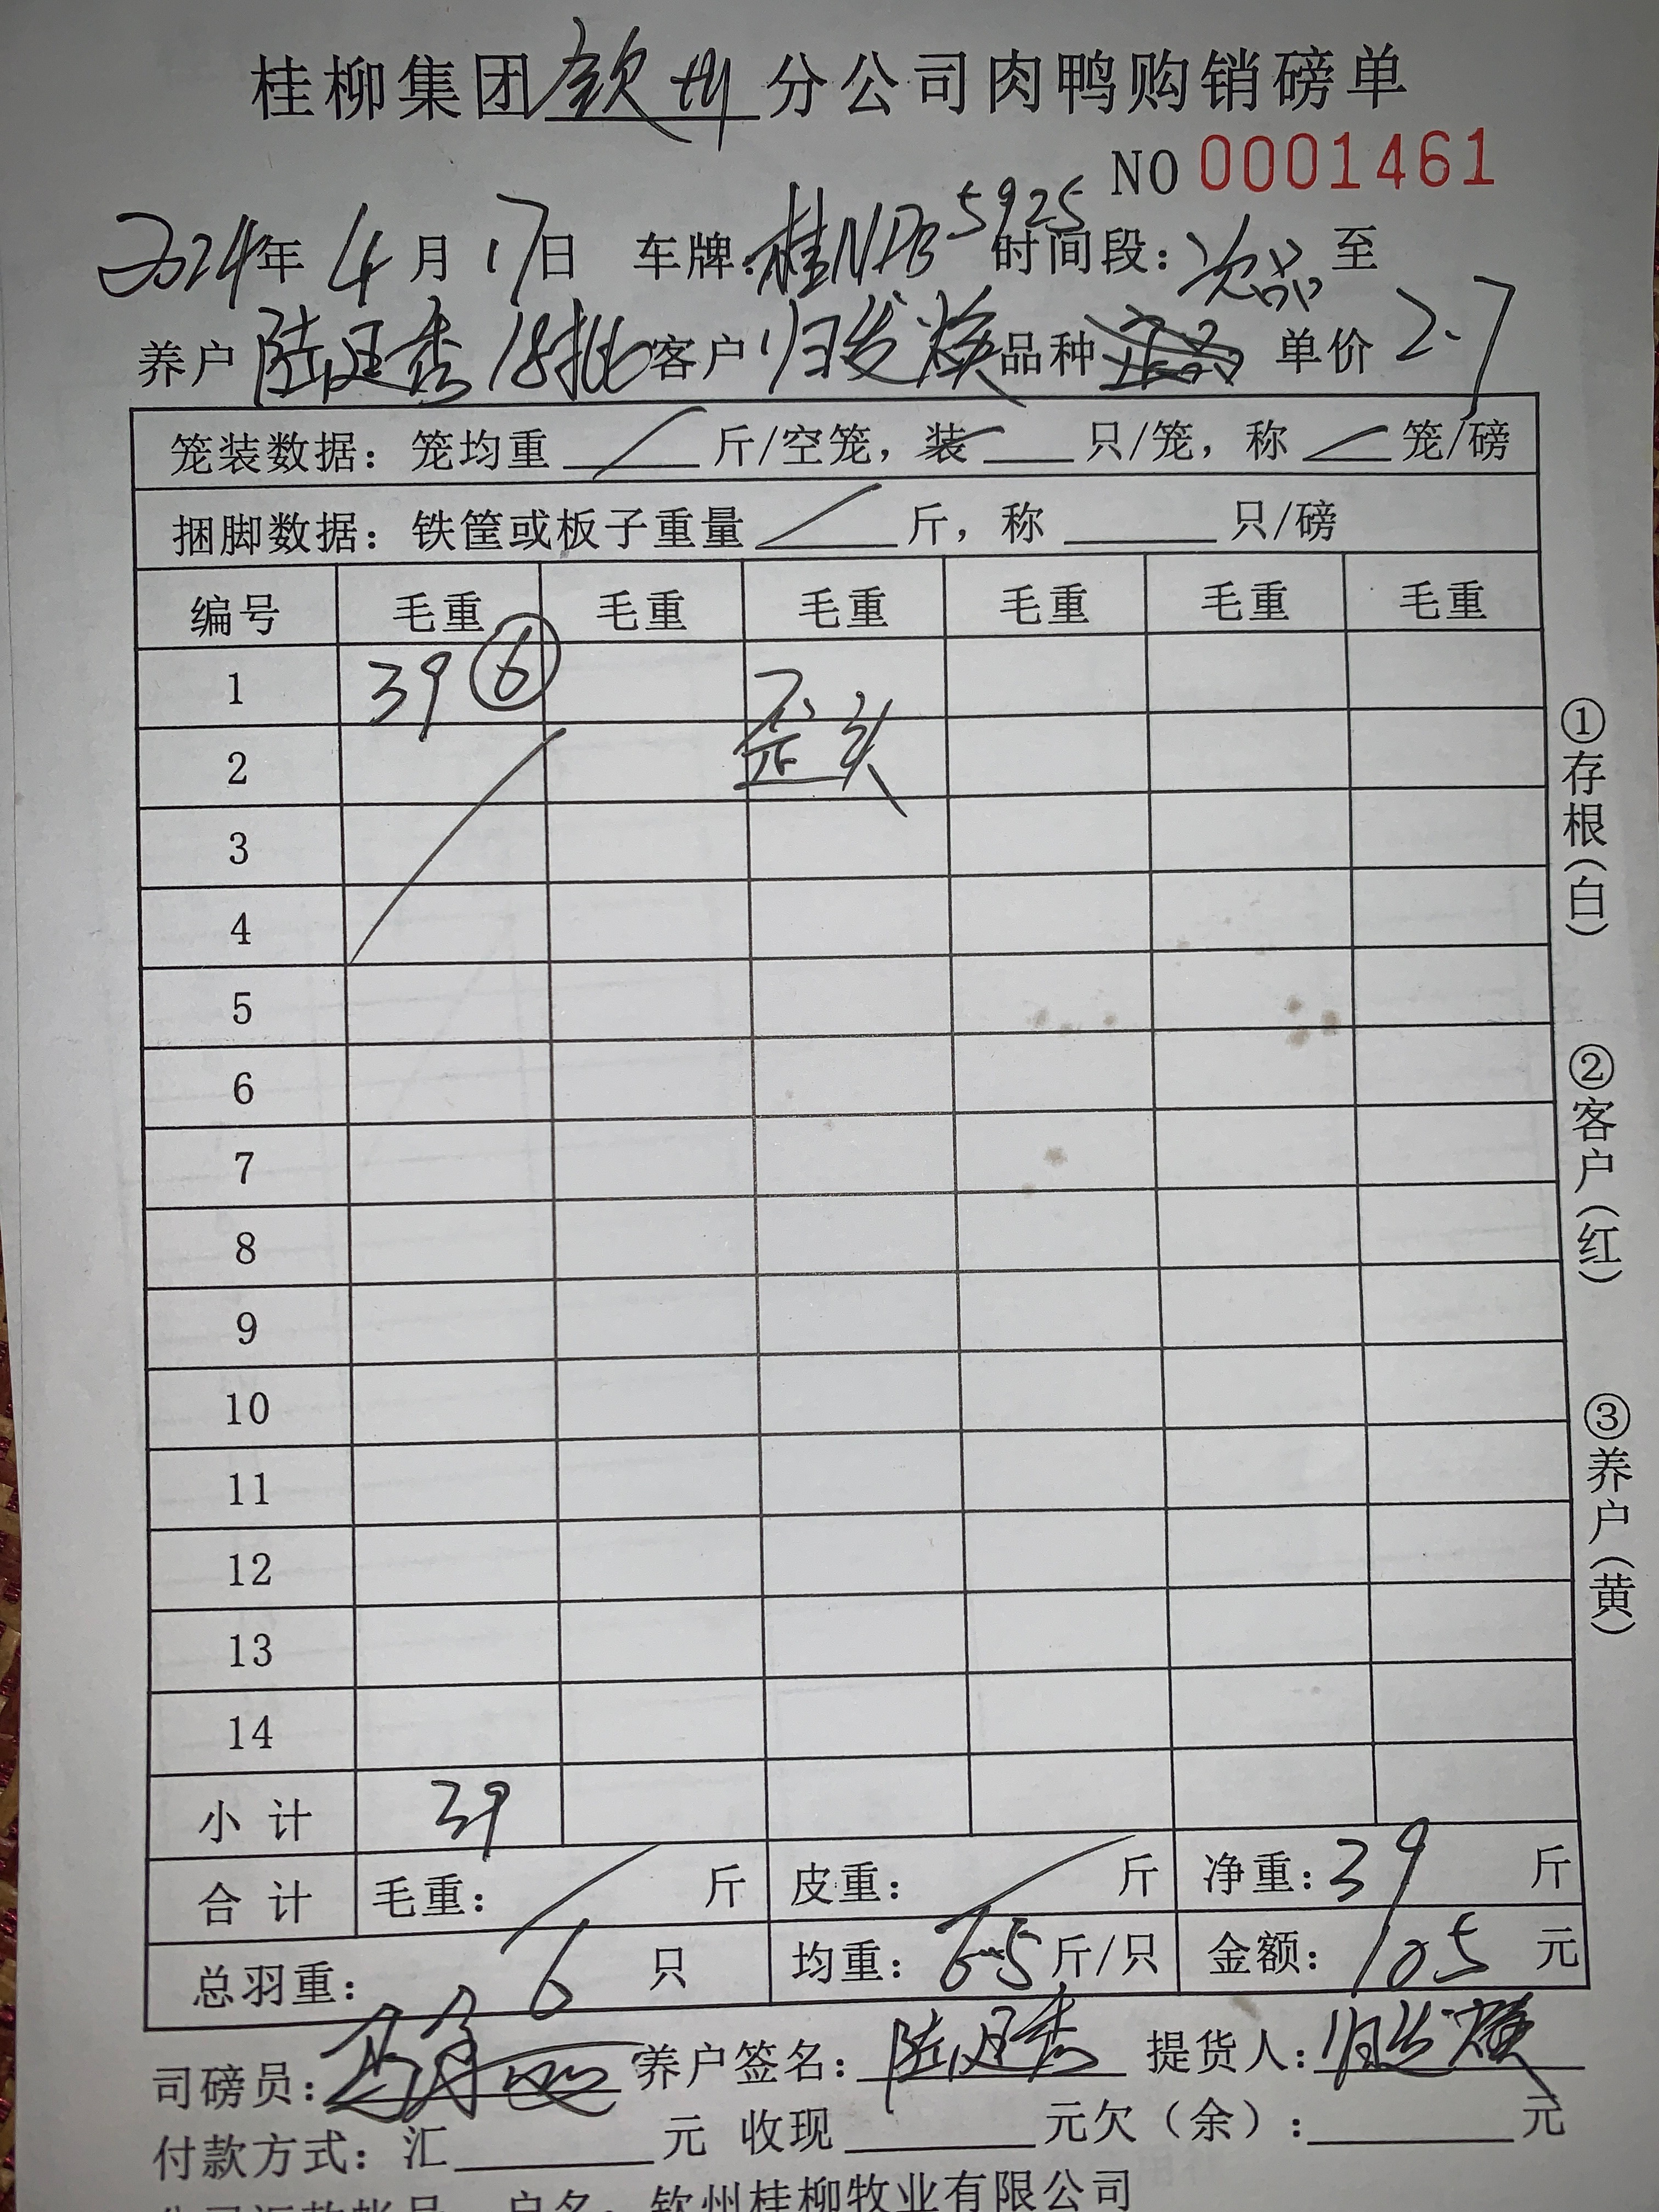 桂柳集团钦州分公司肉鸭购销磅单
NO 0001461
2024年 4月 17日 车牌:桂NPB5925 时间段:次品 至
养户 陆廷秀 18批 客户 归发焕 品种 单价 2.7
笼装数据:笼均重 斤/空笼,装 只/笼,称 笼/磅
捆脚数据:铁筐或板子重量 斤,称 只/磅
编号 毛重 毛重 毛重 毛重 毛重 毛重
1 39 ⑥
歪头
2
3
4
5
6
7
8
9
10
11
12
13
14
小计 39
合计 毛重: 斤 皮重: 斤 净重:39 斤
总羽重: 6 只 均重:6.5 斤/只 金额:105 元
司磅员: 养户签名:陆廷秀 提货人:归发焕
付款方式:汇 元 收现 元欠(余): 元
户名:钦州桂柳牧业有限公司
①存根(白)
②客户(红)
③养户(黄)